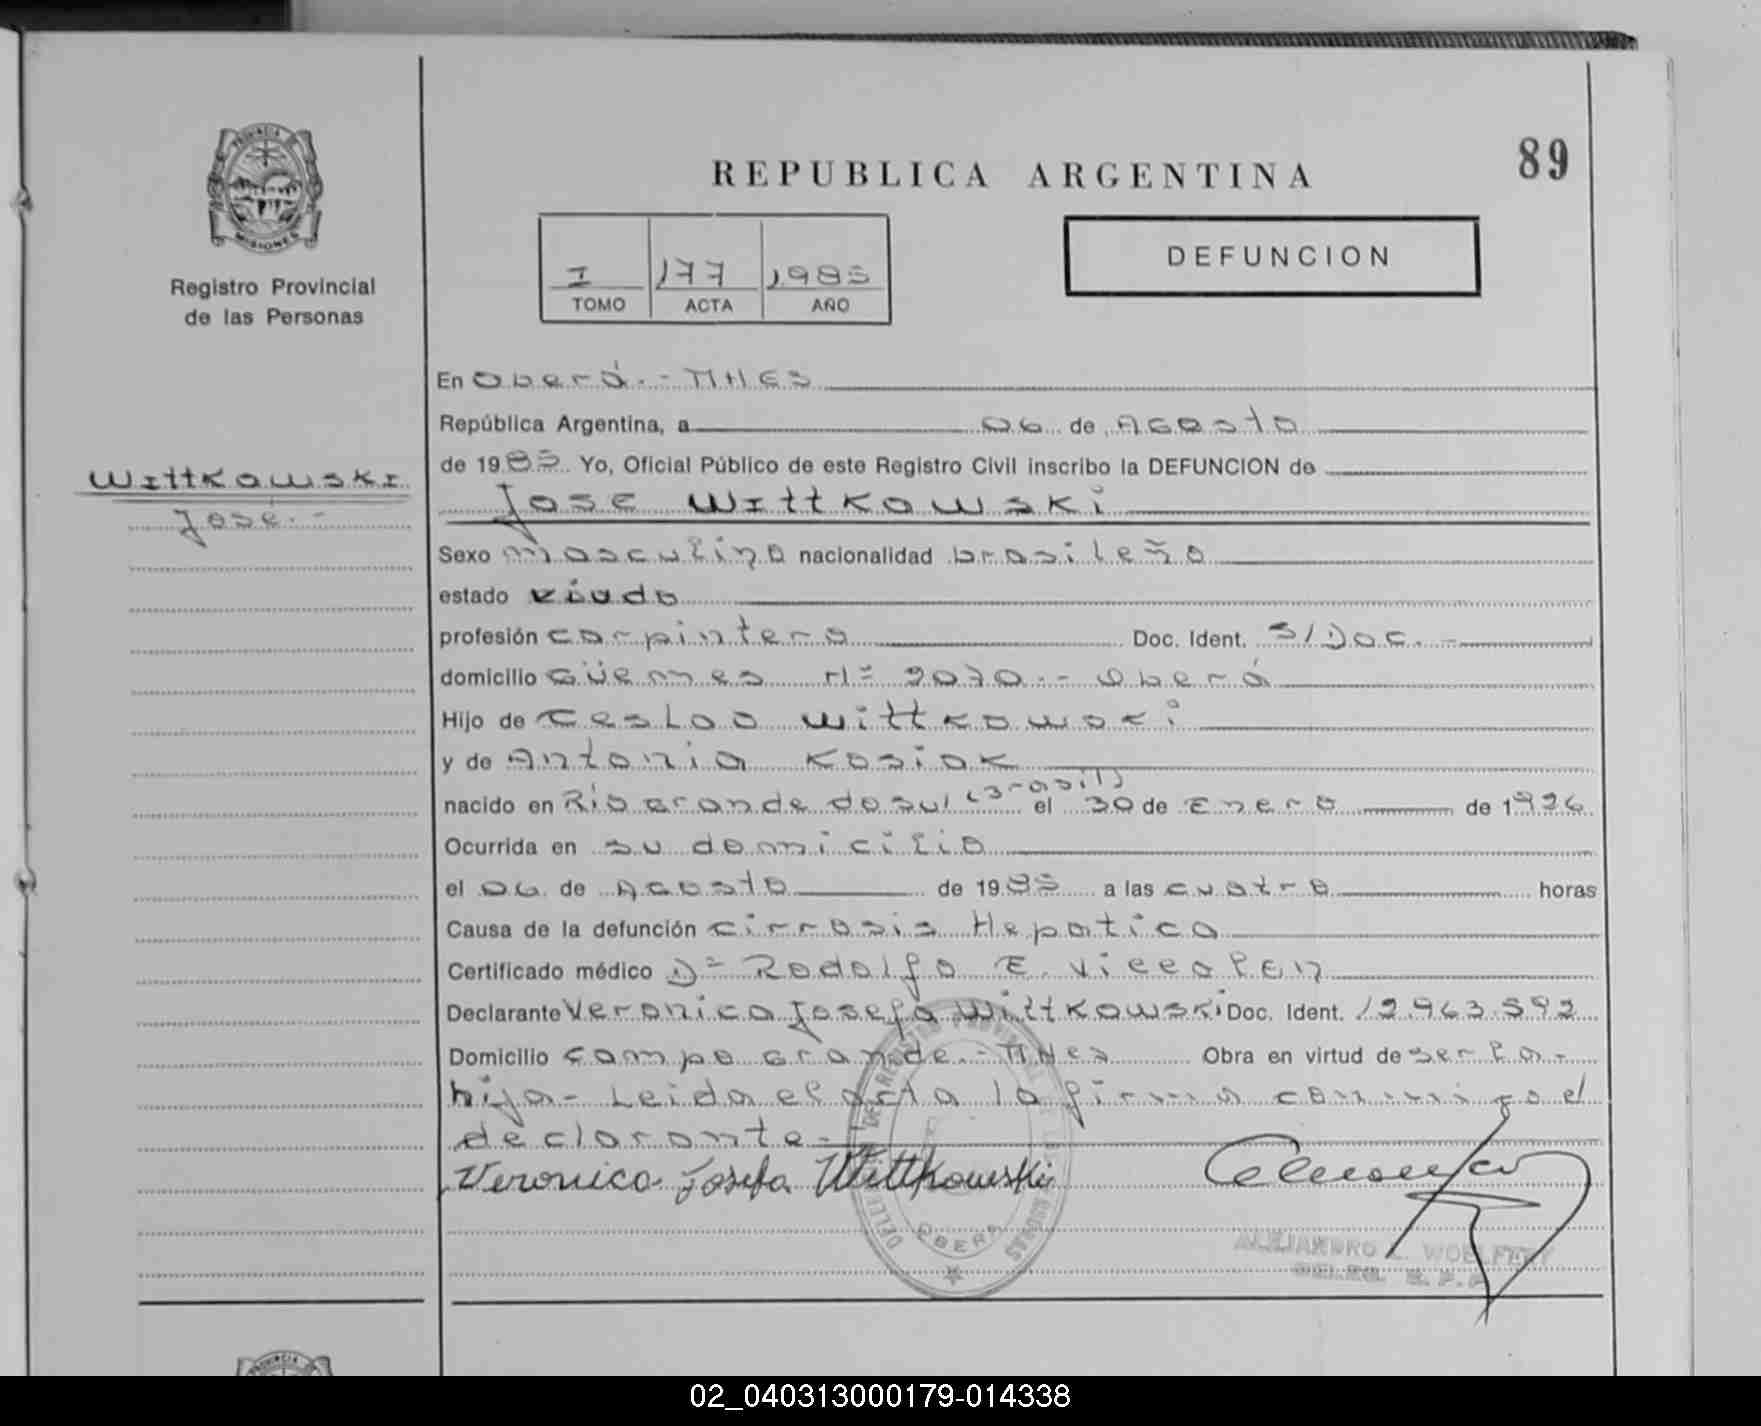 89
PROVINCIA
MISIONES
REPUBLICA ARGENTINA
Registro Provincial
de las Personas
I 177 1985
TOMO ACTA AÑO
DEFUNCION
En Oberá.-MNES
República Argentina, a 06 de Agosto
de 1985 Yo, Oficial Público de este Registro Civil inscribo la DEFUNCION de
WITTKOWSKI
José.-
José WITTKOWSKI
Sexo masculino nacionalidad brasileño
estado viudo
profesión carpintero Doc. Ident. S/Doc.-
domicilio Güemes Nº 2070.- Oberá
Hijo de Cesloo Wittkowski
y de Antonia Kosiak
nacido en Río Grande do Sul (Brasil) el 30 de Enero de 1926
Ocurrida en su domicilio
el 06 de Agosto de 1985 a las cuatro horas
Causa de la defunción Cirrosis Hepatica
Certificado médico Dº Rodolfo E.
Declarante Veronica Josefa Wittkowski Doc. Ident. 12.963.592
Domicilio Campo Grande.-MNes Obra en virtud de ser la-
hija- Leida el acta la firma conmigo el
declarante.-
Veronica Josefa Wittkowski
OBERA
ALEJANDRO
PROVINCIA
02_040313000179-014338